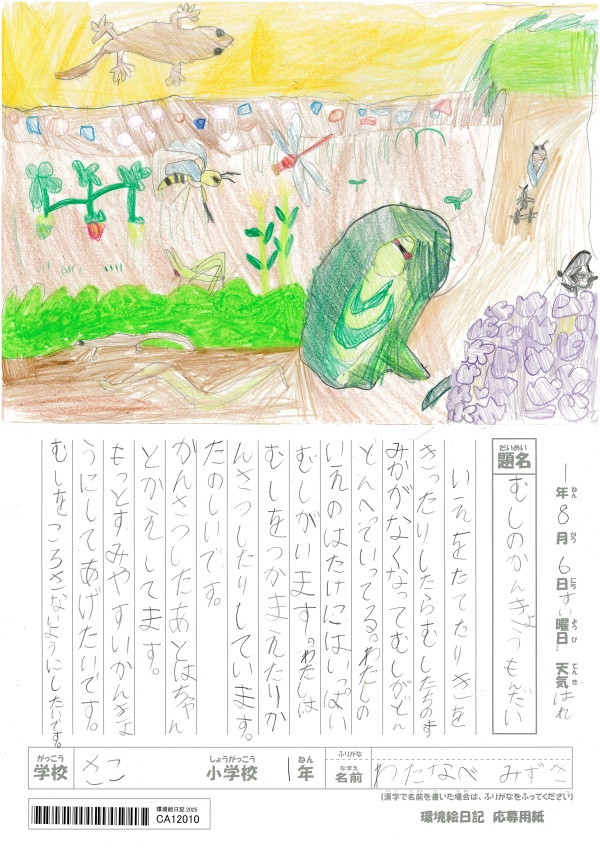 1年8月6日すい曜日天気はれ
ねん がつ にち ようび てんき
だいめい
題名
むしのかんきょうもんだい
いえをたてたりきを
きったりしたらむしたちのす
みかがなくなってむしがどん
どんへっていってる。わたしの
いえのはたけにはいっぱい
むしがいます。わたしは
むしをつかまえたりか
んさつしたりしています。
たのしいです。
かんさつしたあとはちゃん
とかえしてます。
もっとすみやすいかんきょ
うにしてあげたいです。
むしをころさないようにしたいです。
がっこう
学校
さこ
しょうがっこう
小学校
1年
ねん
ふりがな
なまえ
名前
わたなべ みずき
(漢字で名前を書いた場合は、ふりがなをふってください)
環境絵日記 2025
CA12010
環境絵日記 応募用紙